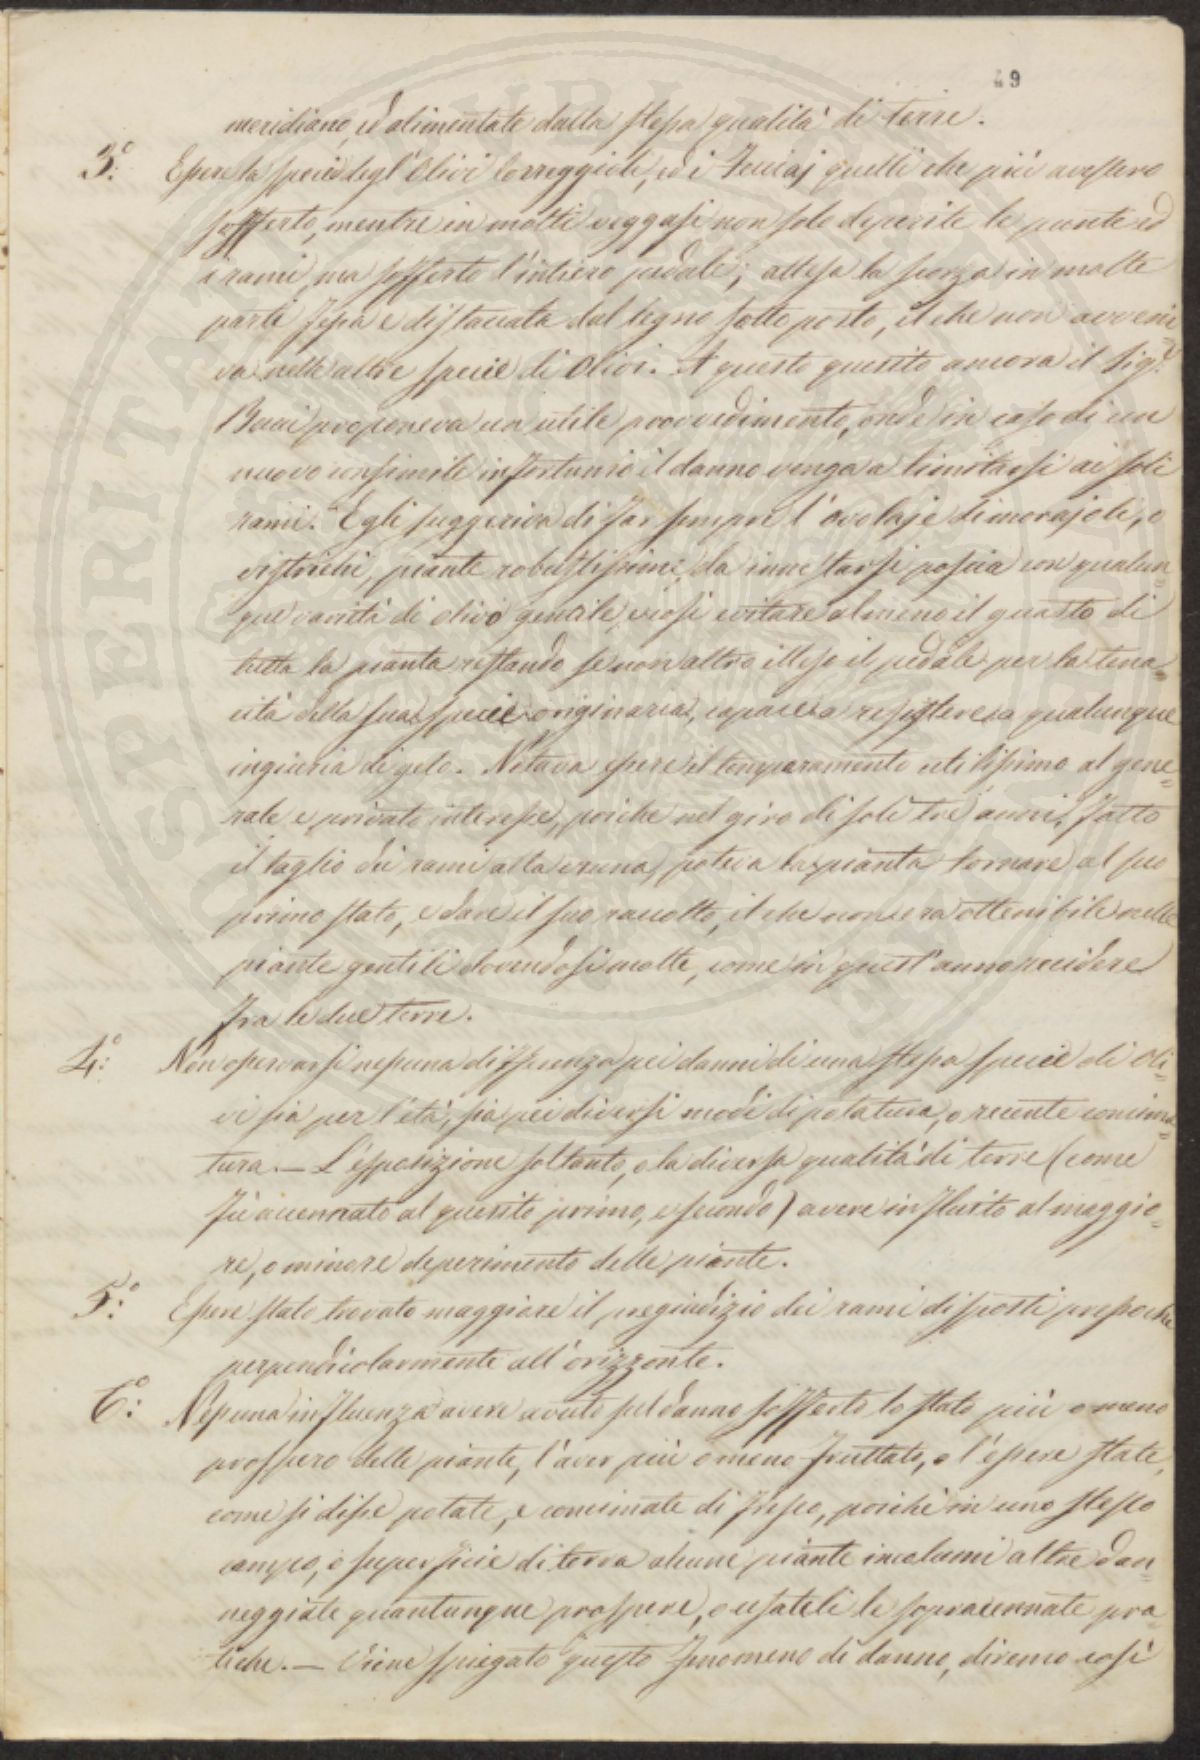 49
meridiano, ed alimentate dalla stessa qualità di terre.
3.° Essere la specie degl'Olivi Correggioli, ed i quelli che più avessero
sofferto, mentre in molti veggasi non solo deperite le punte ed
i rami, ma sofferto l'intiero pedale; attesa la scorza in molte
parti fessa e distaccata dal legno sotto posto, il che non avveni=
va nelle altre specie di Olivi. A questo quesito ancora il Sig.r
Bucci proponeva un utile provvedimento, onde in caso di un
nuovo consimile infortunio il danno venga a limitarsi ai soli
rami. Egli suggeriva di far sempre l'ovolaje di morajoli, o
, piante robustissime, da innestarsi poscia con qualun=
que varietà di olivo gentile, e così evitare almeno il guasto di
tutta la pianta restando se non altro illeso il pedale per la tena=
cità della sua specie originaria, capace a resistere a qualunque
ingiuria di gelo. Notava essere il temperamento utilissimo al gene=
rale e privato interesse, poiche nel giro di soli tre anni, fatto
il taglio dei rami alla corona, poteva la pianta tornare al suo
primo stato, e dare il suo raccolto, il che non era ottenibile nelle
piante gentili dovendosi molte, come in quest'anno recidere
fra le due terre.
4.° Non osservarsi nessuna differenza pei danni di una stessa specie di Oli=
vi sia per l'età, sia pei diversi modi di potatura, o recente concima=
tura. — L'esposizione soltanto, o la diversa qualità di terre (come
fù accennato al quesito primo, e secondo) avere influito al maggio=
re, o minore deperimento delle piante.
5.° Essere stato trovato maggiore il pregiudizio dei rami disposti pressoche
perpendicolarmente all'orizzonte.
6.° Nessuna influenza avere avuto sul danno sofferto lo stato più o meno
prospero delle piante, l'aver più o meno fruttato, o l'essere state,
come si disse potate, e concimate di fresco, poichè in uno stesso
campo, o superficie di terra alcune piante incolumi altre dan=
neggiate quantunque prospere, o usateli le sopracennate pra=
tiche. — Viene spiegato questo fenomeno di danno, diremo così